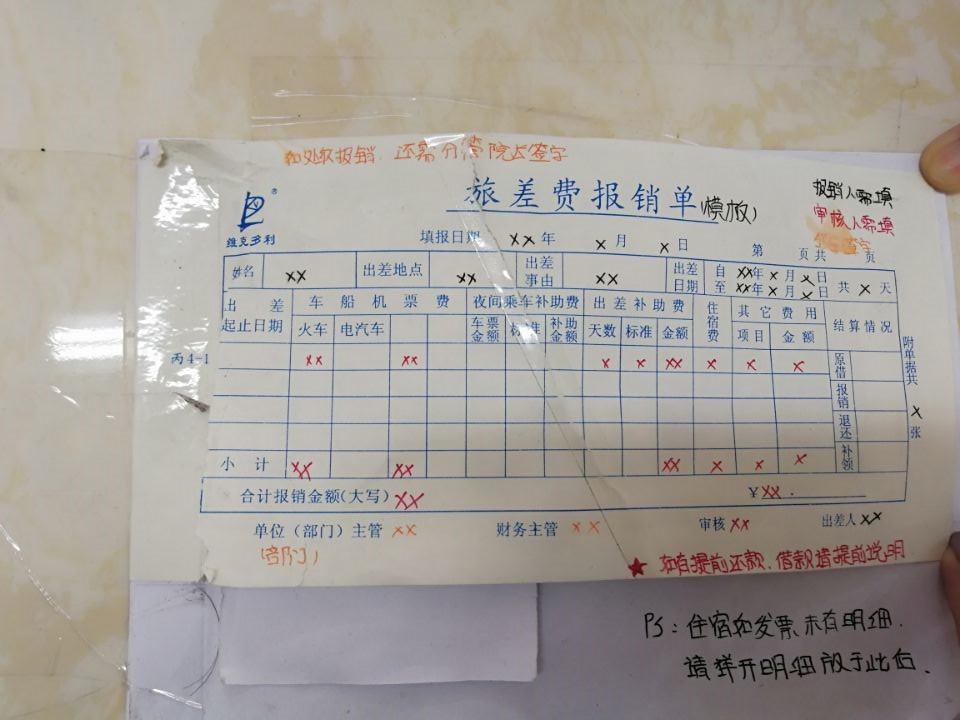 如处级报销,还需分管院长签字
旅差费报销单(模板)
报销人需填
审核人需填
维克多利®
填报日期 ×× 年 × 月 × 日 第 页共 页
姓名 ×× 出差地点 ×× 出差事由 ×× 出差日期 自 ××年 × 月 × 日 至 ××年 × 月 × 日 共 × 天
出差起止日期 车船机票费 夜间乘车补助费 出差补助费 住宿费 其它费用 结算情况
火车 电汽车 车票金额 标准 补助金额 天数 标准 金额 项目 金额
丙4-1 ×× ×× × × ×× × × × 原借
报销
退还
小计 ×× ×× ×× × × × 补领
附单据共 × 张
合计报销金额(大写) ×× ¥××.
单位(部门)主管 ×× 财务主管 ×× 审核 ×× 出差人 ××
(部门)
★如有提前还款、借款请提前说明
PS:住宿如发票未有明细.
请详开明细放于此后.